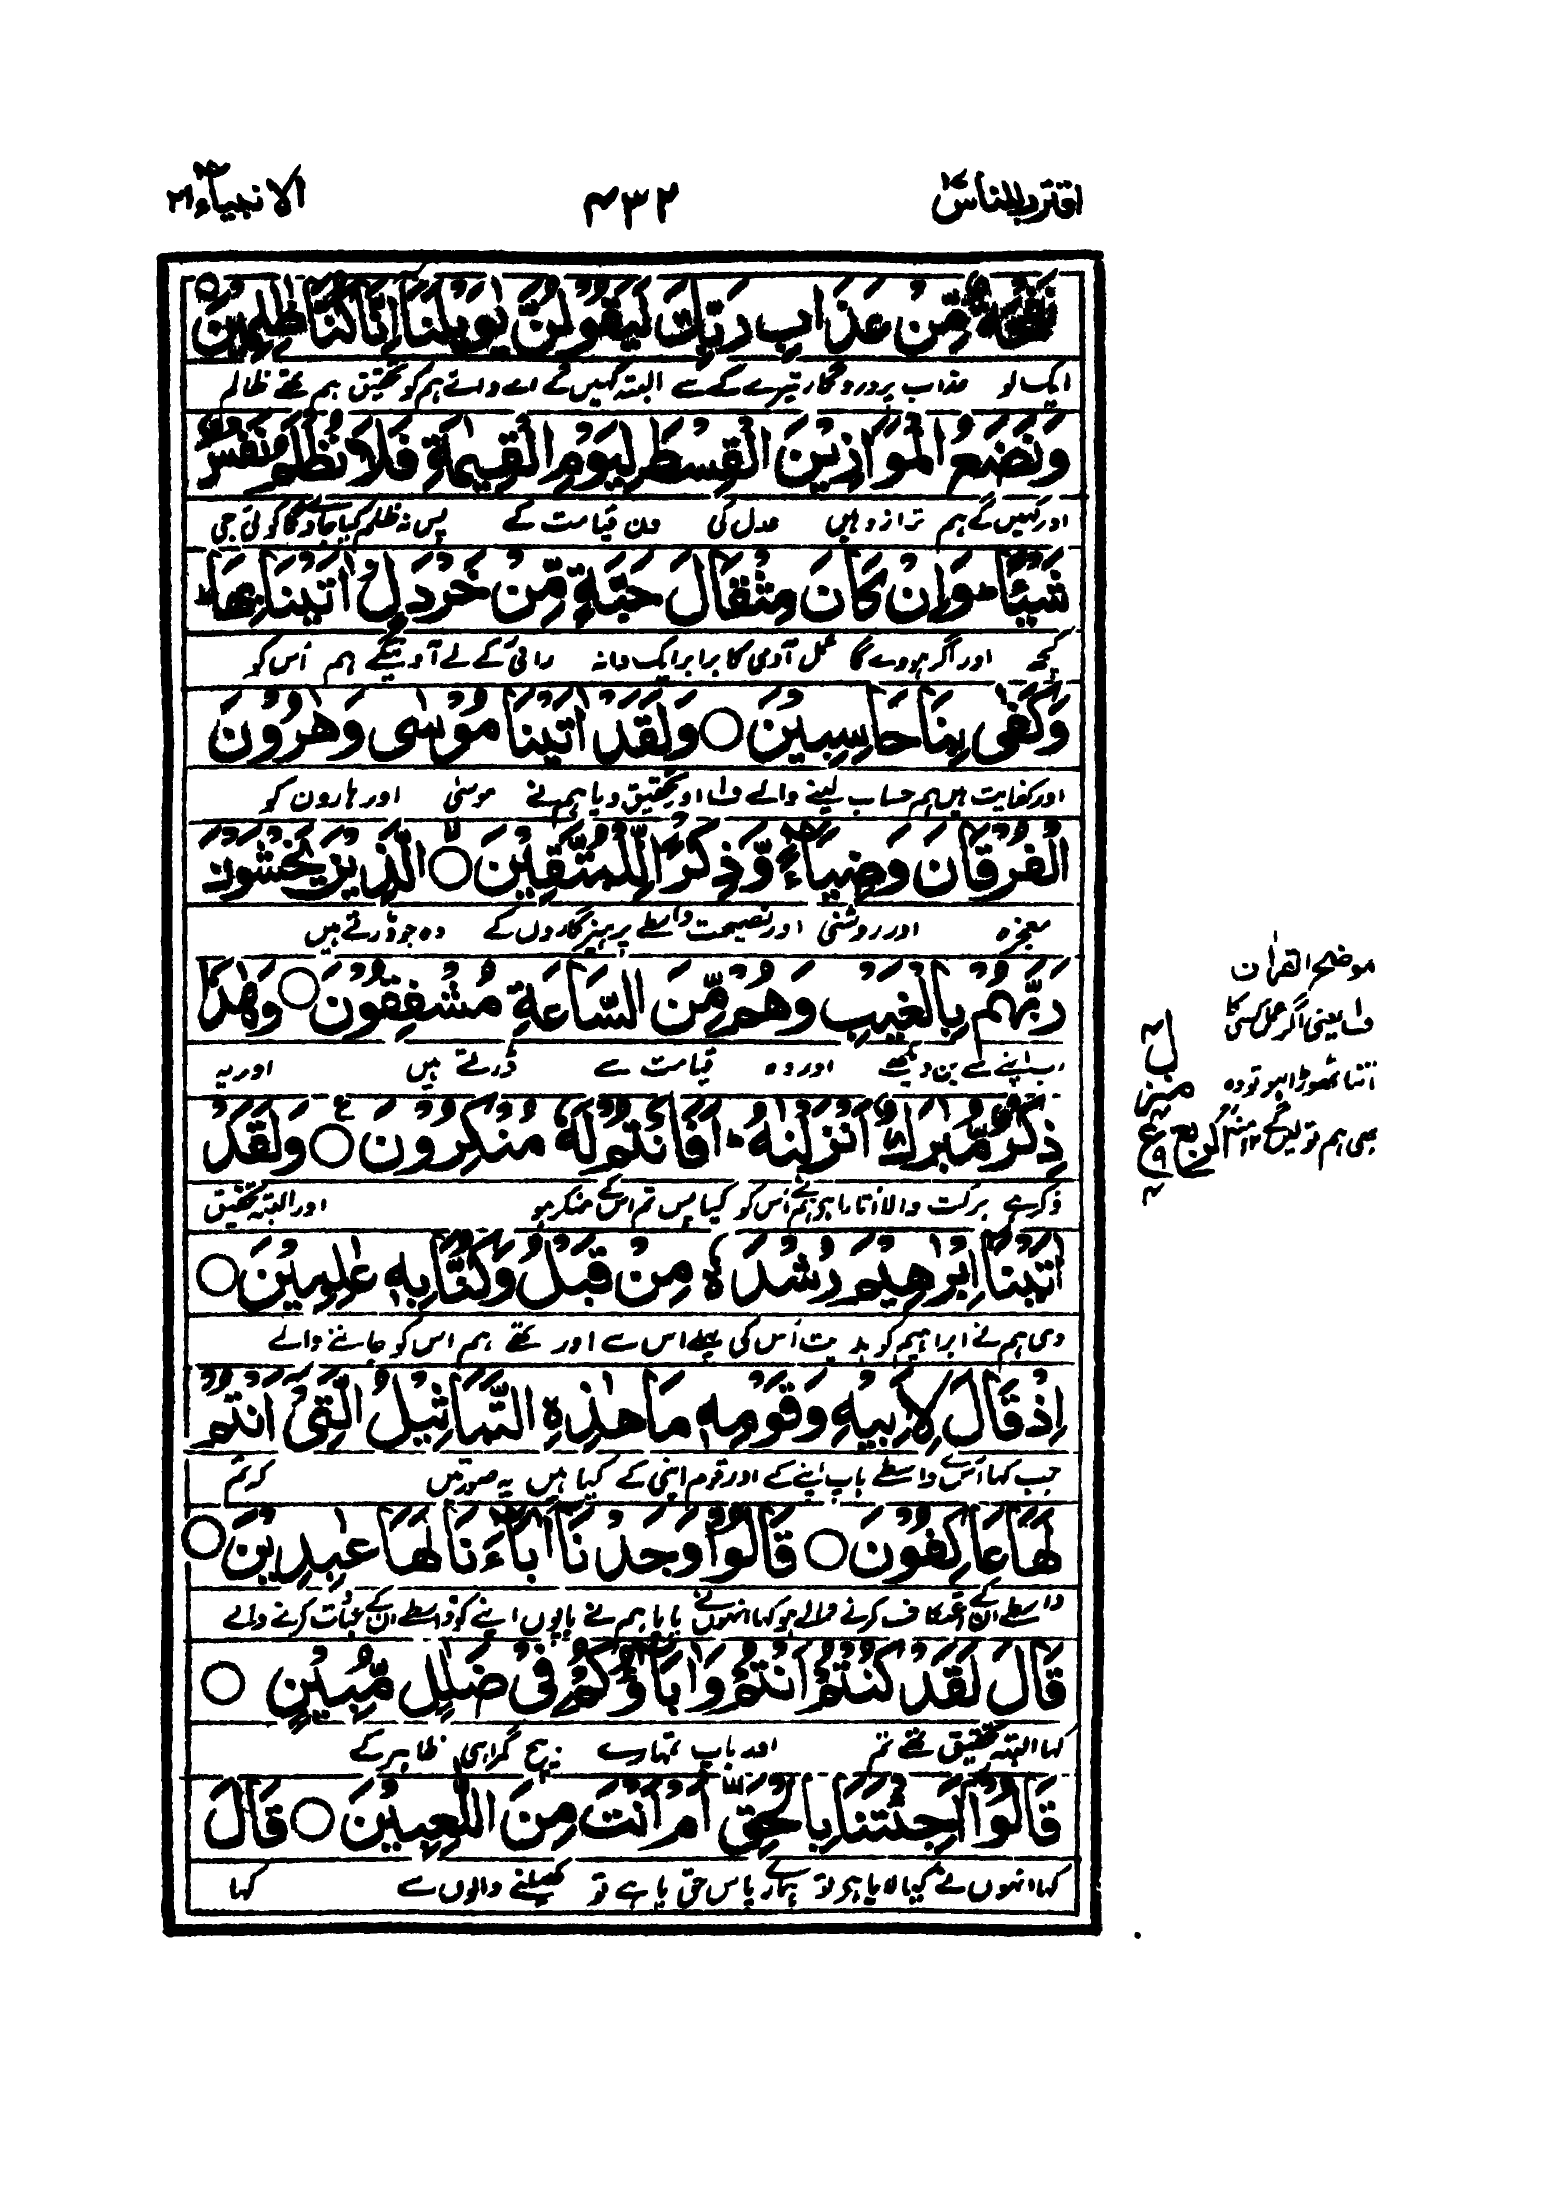 اقترب للناس ١٧
٤٣٢
الانبیاء ٢١
نَفْحَةٌ مِّنْ عَذَابِ رَبِّكَ لَيَقُوْلُنَّ يٰوَيْلَنَا اِنَّا كُنَّا ظٰلِمِيْنَ ○
ایک لو عذاب پروردگار تیرے کے سے البتہ کہیں گے اے وائے ہم کو تحقیق ہم تھے ظالم
وَنَضَعُ الْمَوَازِيْنَ الْقِسْطَ لِيَوْمِ الْقِيٰمَةِ فَلَا تُظْلَمُ نَفْسٌ
اور رکہیں گے ہم ترازویں عدل کی دن قیامت کے پس نہ ظلم کیا جاوے گا کوئی جی
شَيْـًٔا ط وَاِنْ كَانَ مِثْقَالَ حَبَّةٍ مِّنْ خَرْدَلٍ اَتَيْنَا بِهَا ط
کچھ اور اگر ہووے گا عمل آدمی کا برابر ایک دانہ رائی کے لے آوینگے ہم اُس کو
وَكَفٰى بِنَا حَاسِبِيْنَ ○ وَلَقَدْ اٰتَيْنَا مُوْسٰى وَهٰرُوْنَ
اور کفایت ہیں ہم حساب لینے والے ف۱ اور تحقیق دیا ہم نے موسیٰ اور ہارون کو
الْفُرْقَانَ وَضِيَآءً وَّذِكْرًا لِّلْمُتَّقِيْنَ ○ الَّذِيْنَ يَخْشَوْنَ
معجزہ اور روشنی اور نصیحت واسطے پرہیزگاروں کے وہ جو ڈرتے ہیں
رَبَّهُمْ بِالْغَيْبِ وَهُمْ مِّنَ السَّاعَةِ مُشْفِقُوْنَ ○ وَهٰذَا
رب اپنے سے بن دیکھے اور وہ قیامت سے ڈرتے ہیں اور یہ
ذِكْرٌ مُّبٰرَكٌ اَنْزَلْنٰهُ ط اَفَاَنْتُمْ لَهٗ مُنْكِرُوْنَ ○ وَلَقَدْ
ذکر ہے برکت والا اُتارا ہے ہم نے اُس کو کیا پس تم اس کے منکر ہو اور البتہ تحقیق
اٰتَيْنَآ اِبْرٰهِيْمَ رُشْدَهٗ مِنْ قَبْلُ وَكُنَّا بِهٖ عٰلِمِيْنَ ○
دی ہم نے ابراہیم کو ہدایت اُس کی پہلے اس سے اور تھے ہم اس کو جاننے والے
اِذْ قَالَ لِاَبِيْهِ وَقَوْمِهٖ مَا هٰذِهِ التَّمَاثِيْلُ الَّتِيْٓ اَنْتُمْ
جب کہا اُس نے واسطے باپ اپنے کے اور قوم اپنی کے کیا ہیں یہ صورتیں کہ تم
لَهَا عَاكِفُوْنَ ○ قَالُوْا وَجَدْنَآ اٰبَآءَنَا لَهَا عٰبِدِيْنَ ○
واسطے ان کے اعتکاف کرنے والے ہو کہا انہوں نے پایا ہم نے باپوں اپنے کو واسطے ان کے عبادت کرنے والے
قَالَ لَقَدْ كُنْتُمْ اَنْتُمْ وَاٰبَآؤُكُمْ فِيْ ضَلٰلٍ مُّبِيْنٍ ○
کہا البتہ تحقیق تھے تم اور باپ تمہارے بیچ گمراہی ظاہر کے
قَالُوْٓا اَجِئْتَنَا بِالْحَقِّ اَمْ اَنْتَ مِنَ اللّٰعِبِيْنَ ○ قَالَ
کہا انہوں نے کیا لایا ہے تو ہمارے پاس حق یا ہے تو کھیلنے والوں سے کہا
موضح القرآن
ف۱ یعنی اگر عمل کسی کا
اتنا تھوڑا ہو تو وہ
بھی ہم تولیں گے ۱۲ منہ